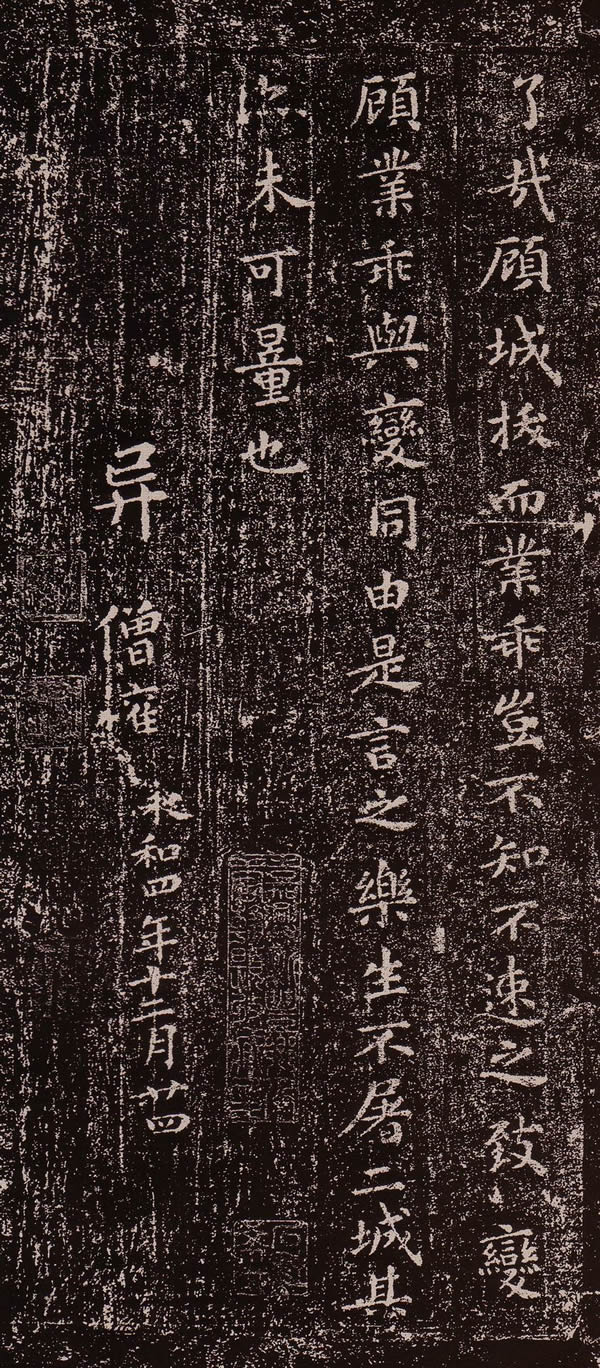 了哉顧城拔而業乖豈不知不速之致變
顧業乖與變同由是言之樂生不屠二城其
未可量也
异
僧雍
永和四年十二月廿四